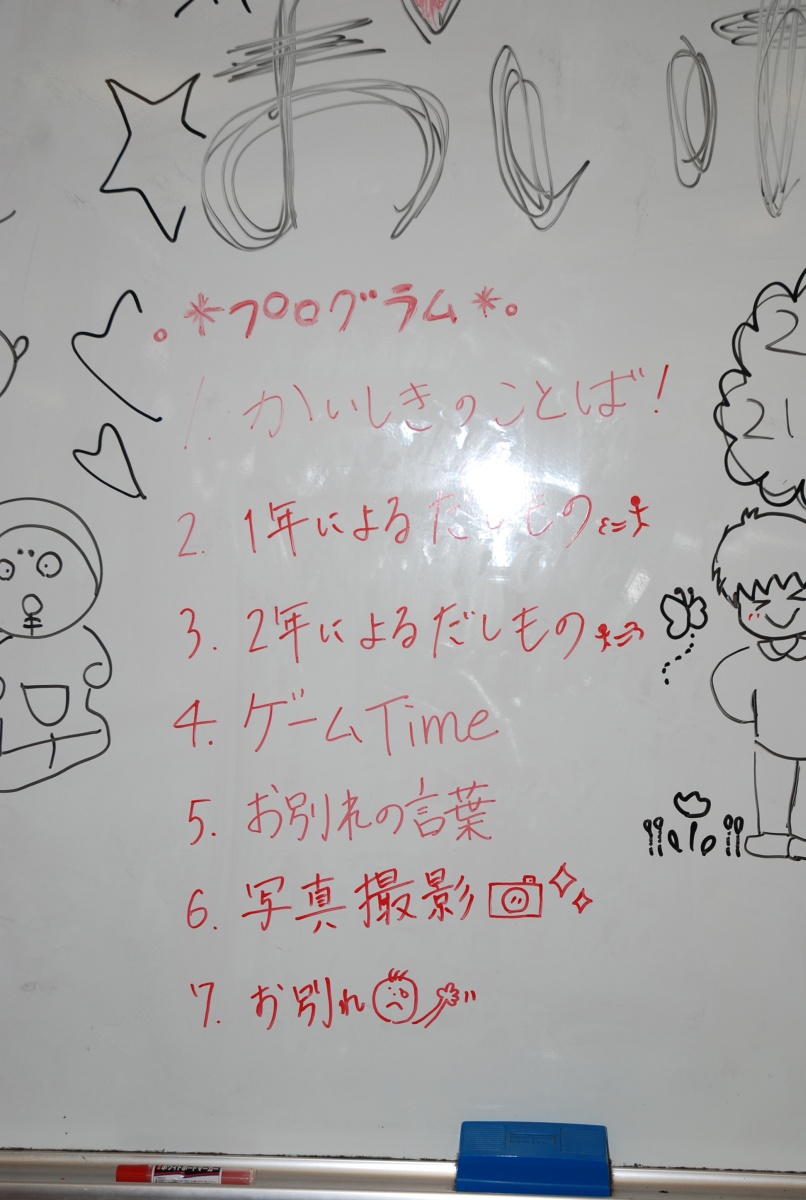 おい
。*プログラム*。
1. かいしきのことば!
2. 1年によるだしもの
3. 2年によるだしもの
4. ゲームTime
5. お別れの言葉
6. 写真撮影
7. お別れ
2
21